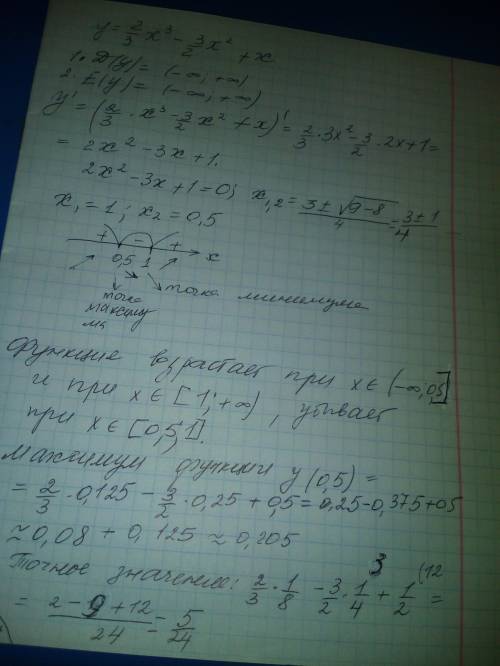 y = 2/3 x³ - 3/2 x² + x
1. D(y) = (-∞; +∞)
2. E(y) = (-∞; +∞)
y' = (2/3 · x³ - 3/2 x² + x)' = 2/3 · 3x² - 3/2 · 2x + 1 =
= 2x² - 3x + 1.
2x² - 3x + 1 = 0; x₁,₂ = (3 ± √(9-8))/4 = (3 ± 1)/4
x₁ = 1; x₂ = 0,5
+ - + x
0,5 1
точка минимума
точка
максиму
ма
Функция возрастает при x ∈ (-∞; 0,5]
и при x ∈ [1; +∞), убывает
при x ∈ [0,5; 1].
Максимум функции y(0,5) =
= 2/3 · 0,125 - 3/2 · 0,25 + 0,5 = 0,25 - 0,375 + 0,5
≈ 0,08 + 0,125 ≈ 0,205
Точное значение: 2/3 · 1/8 - 3/2 · 1/4 + 1/2 =
3 (12
= (2 - 9 + 12)/24 = 5/24